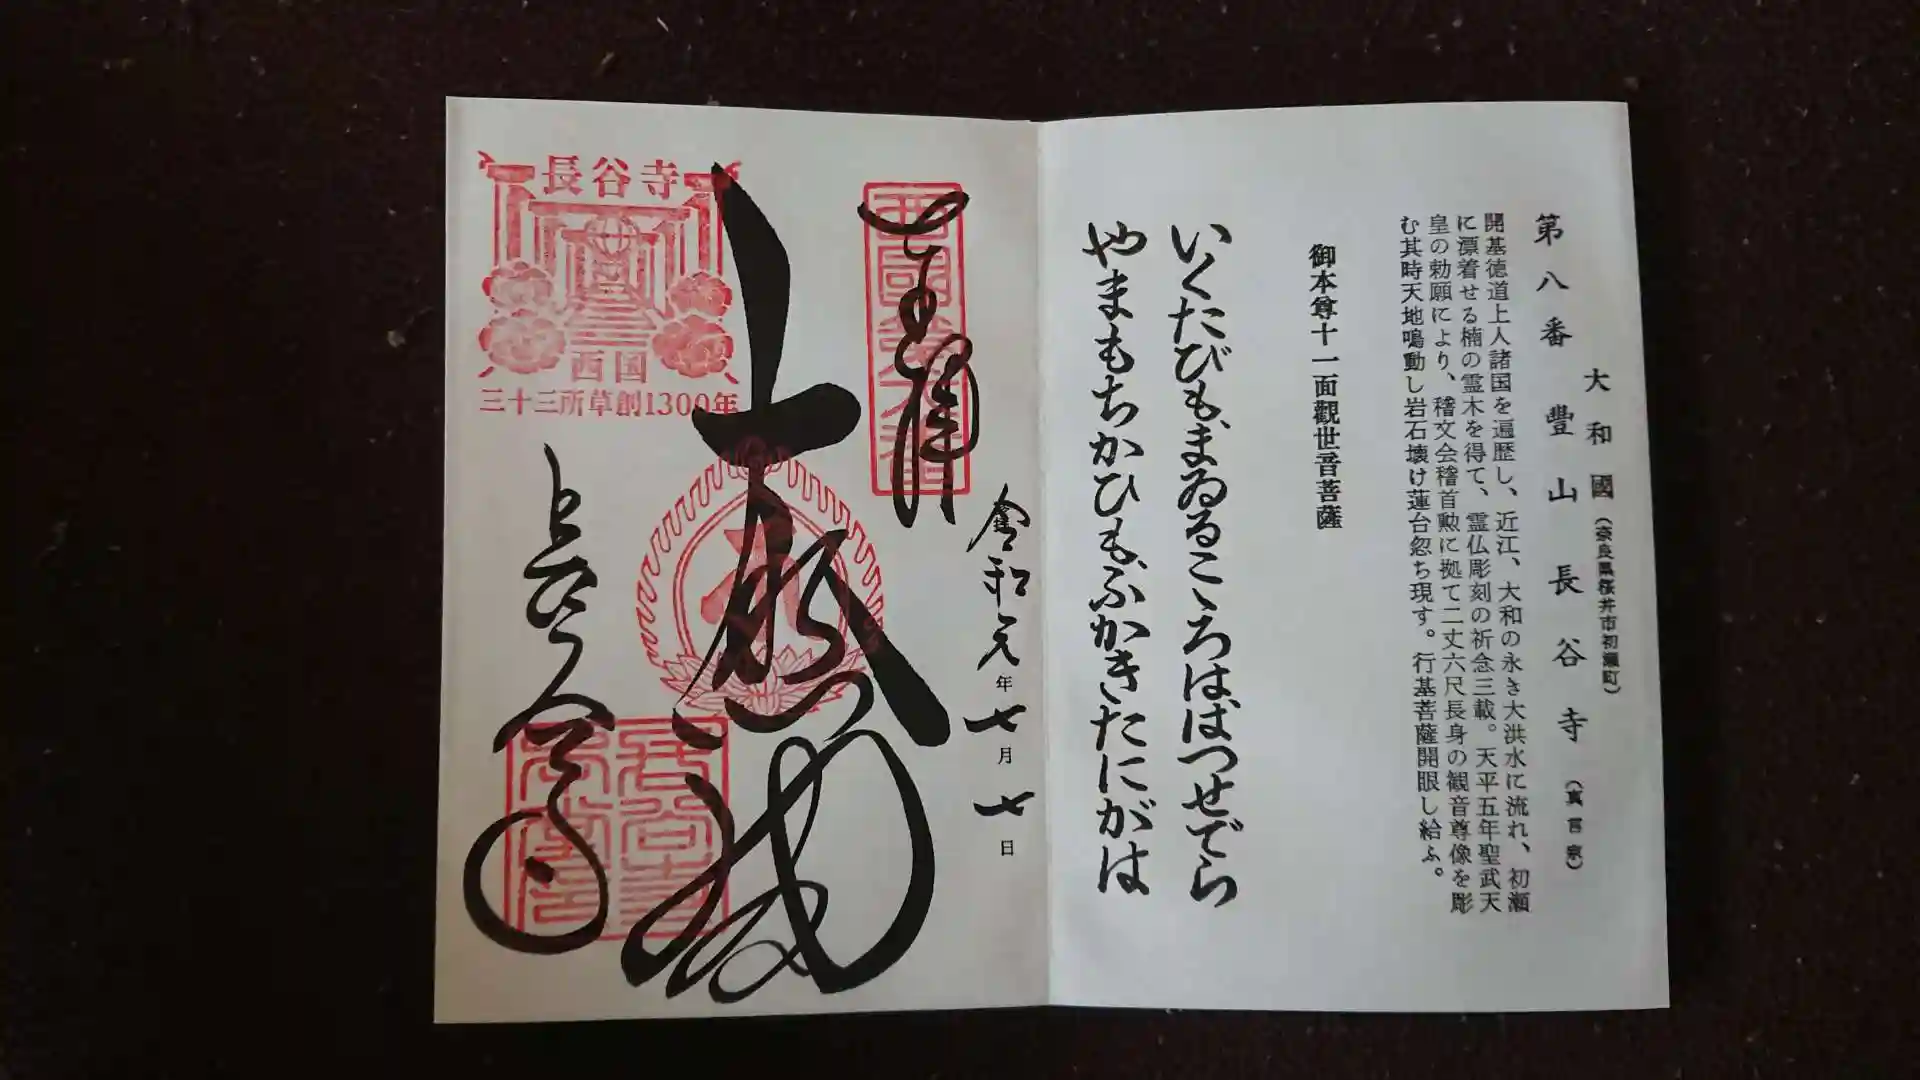 大和國（奈良県桜井市初瀬町）
第八番 豐山 長谷寺（真言宗）
開基徳道上人諸国を遍歴し、近江、大和の永き大洪水に流れ、初瀬
に漂着せる楠の霊木を得て、霊仏彫刻の祈念三載。天平五年聖武天
皇の勅願により、稽文会稽首勲に拠て二丈六尺長身の観音尊像を彫
む其時天地鳴動し岩石壊け蓮台忽ち現す。行基菩薩開眼し給ふ。
御本尊十一面觀世音菩薩
いくたびもまゐるこゝろははつせでら
やまもちかひもふかきたにがは
令和元年七月七日
奉拝
長谷寺
西国
三十三所草創1300年